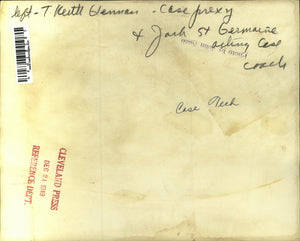 left - T Keith Glennan - Case prexy
& Jack St Germaine
acting Case
coach
Case Tech
CLEVELAND PRESS
DEC 21 1949
REFERENCE DEPT.